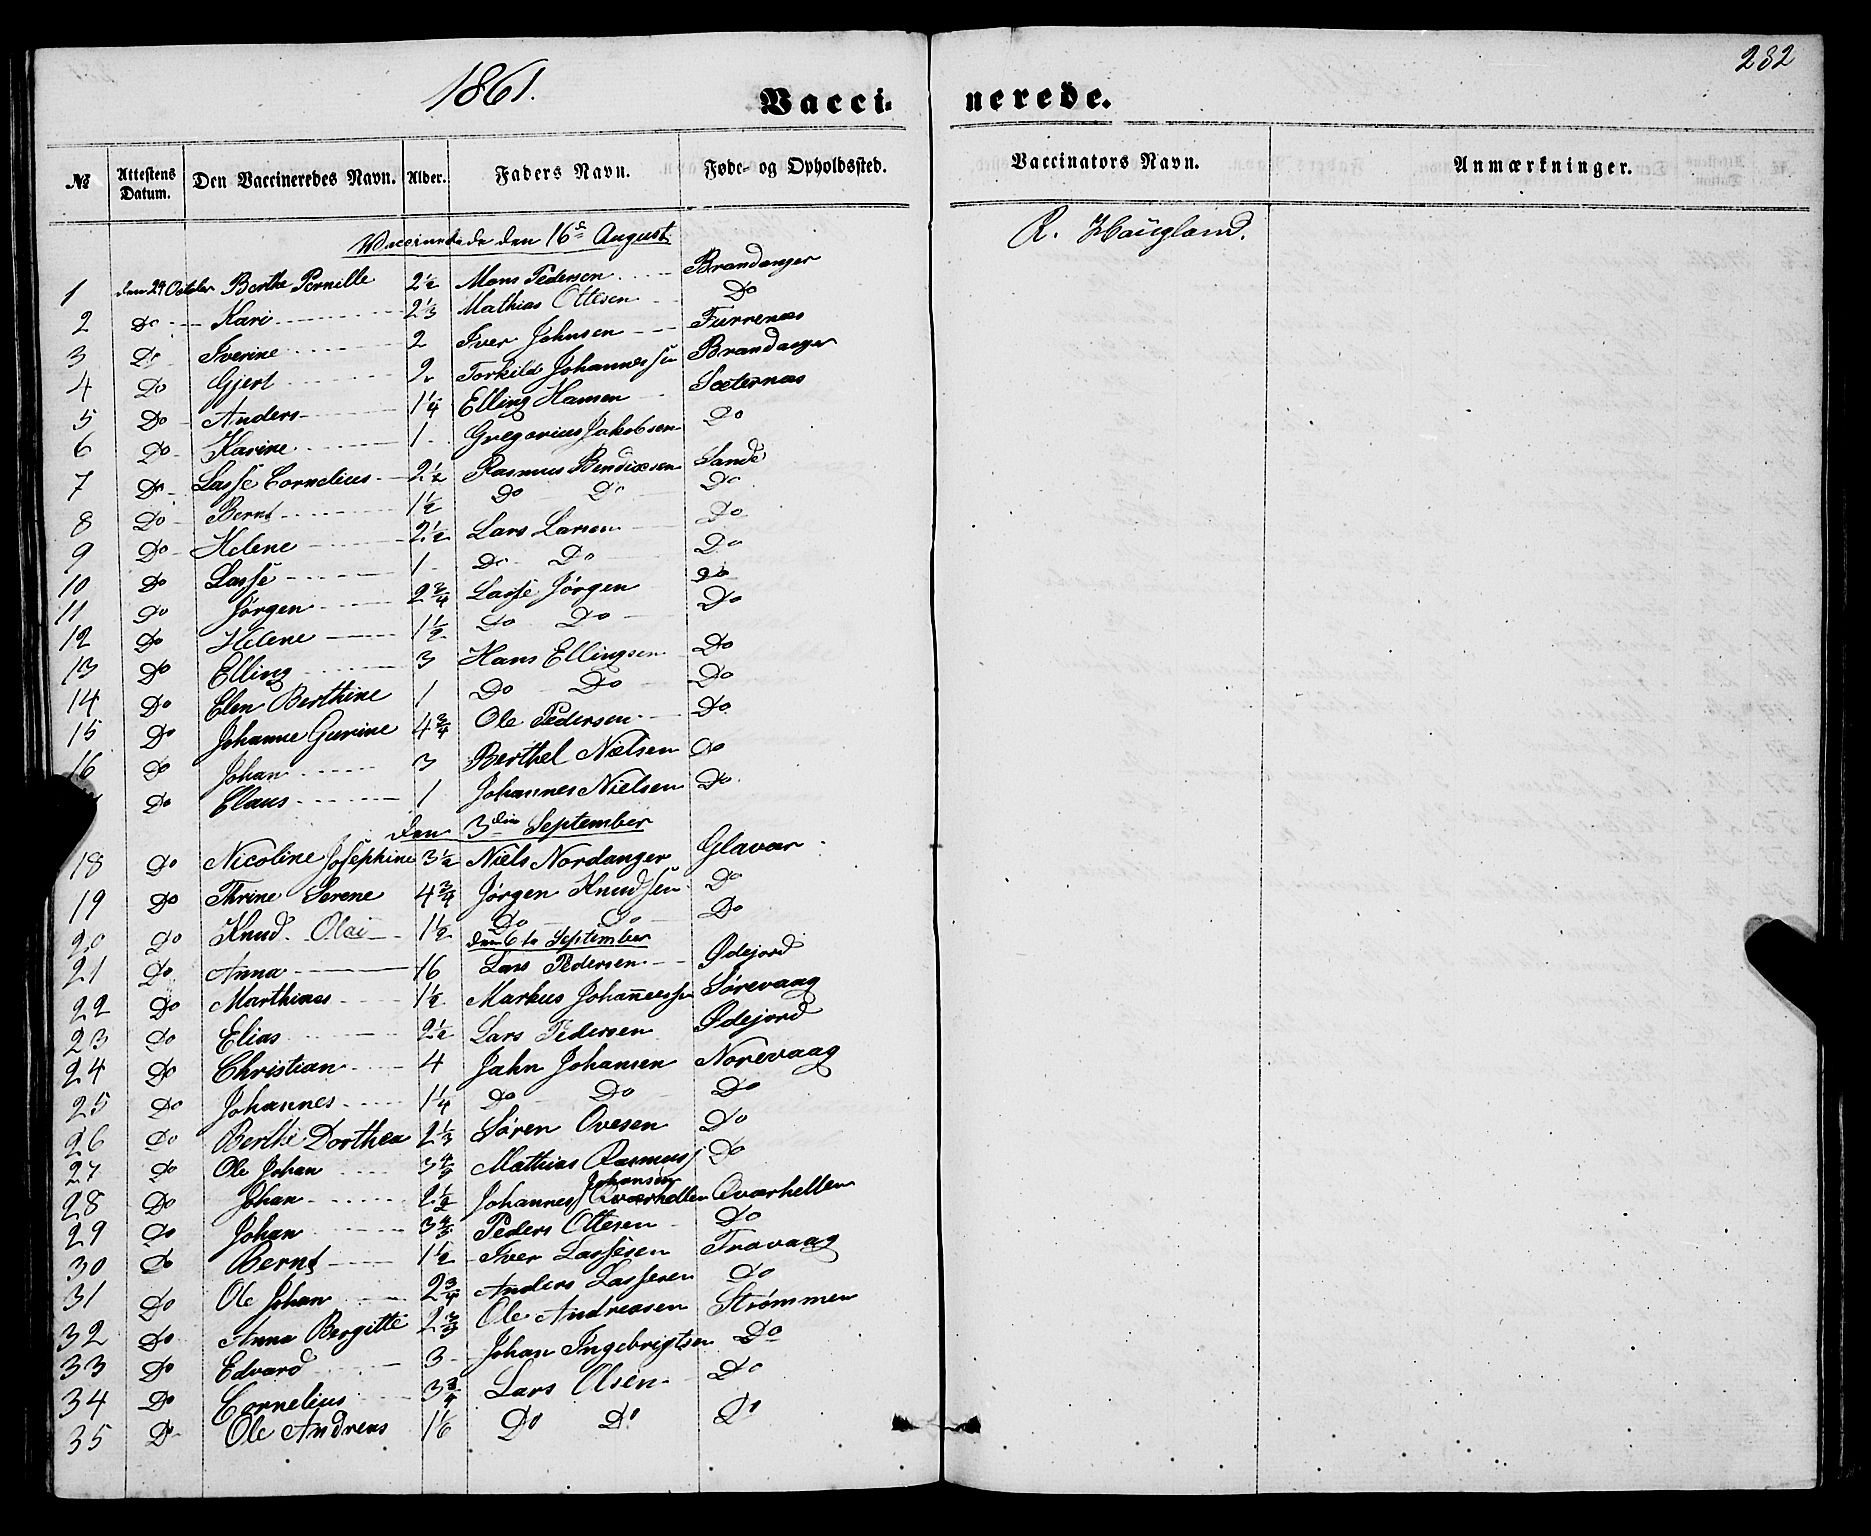 1861.
232
Vacci-
nerede.
№ Attestens Datum. Den Vaccineredes Navn. Alder. Faders Navn. Føde- og Opholdssted. Vaccinators Navn. Anmærkninger.
Vaccinerede den 16de August R. Haugland.
1 den 29 October Berthe Pernille 2½ Mons Pedersen Brandanger
2 Do Kari 2⅓ Mathias Ottesen Do
3 Do Iverine 2 Iver Johnsen Furrenæs
4 Do Gjert 2 Torkild Johannessen Brandanger
5 Do Anders 1¼ Elling Hansen Sæternæs
6 Do Karine 1 Gregorius Jakobsen Do
7 Do Lasse Cornelius 2½ Rasmus Bendixsen Sande
8 Do Bernt 1½ Do Do Do
9 Do Helene 2½ Lars Larsen Do
10 Do Lasse 1 Do Do Do
11 Do Jørgen 2¾ Lasse Jørgen Do
12 Do Helene 1½ Do Do Do
13 Do Elling 3 Hans Ellingsen Do
14 Do Elen Berthine 1 Do Do Do
15 Do Johanne Gurine 4¾ Ole Pedersen Do
16 Do Johan 3 Berthel Nielsen Do
Do Claus 1 Johannes Nielsen Do
den 3die September
18 Do Nicoline Josephine 3½ Niels Nordanger Glavær
19 Do Thrine Serene 4¾ Jørgen Knudsen Do
20 Do Knud Olai 1½ Do Do Do
den 6te September
21 Do Anna 16 Lars Pedersen Ødejord
22 Do Marthines 1½ Markus Johannessen Sørevaag
23 Do Elias 2½ Lars Pedersen Ødejord
24 Do Christian 4 Jahn Johansen Norevaag
25 Do Johannes 1¼ Do Do Do
26 Do Berthe Dorthea 2⅓ Søren Ovesen Do
27 Do Ole Johan 3 Mathias Rasmus Do
28 Do Johan 2½ Johannes Johansen Qværhellen Qværhellen
29 Do Johan 3 Peders Ottesen Do
30 Do Bernt 1½ Iver Lassesen Travaag
31 Do Ole Johan 2¾ Anders Lassesen Do
32 Do Anna Bergitte 2¾ Ole Andreasen Strømmen
33 Do Edvard 3 Johan Ingebrigtsen Do
34 Do Cornelius 3¾ Lars Olsen Do
35 Do Ole Andreas 1⅙ Do Do Do